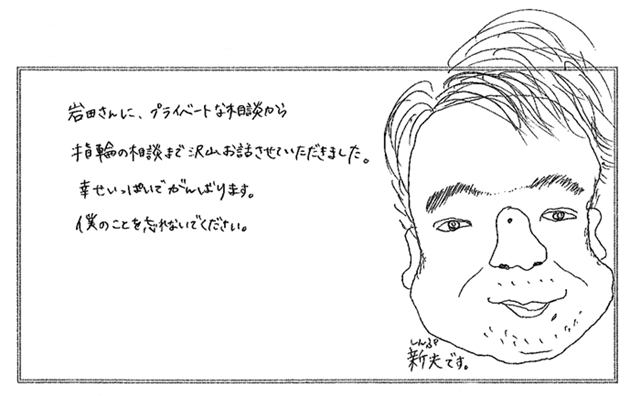 岩田さんに、プライベートな相談から
指輪の相談まで沢山お話させていただきました。
幸せいっぱいでがんばります。
僕のことを忘れないでください。
しんぷ
新夫です。